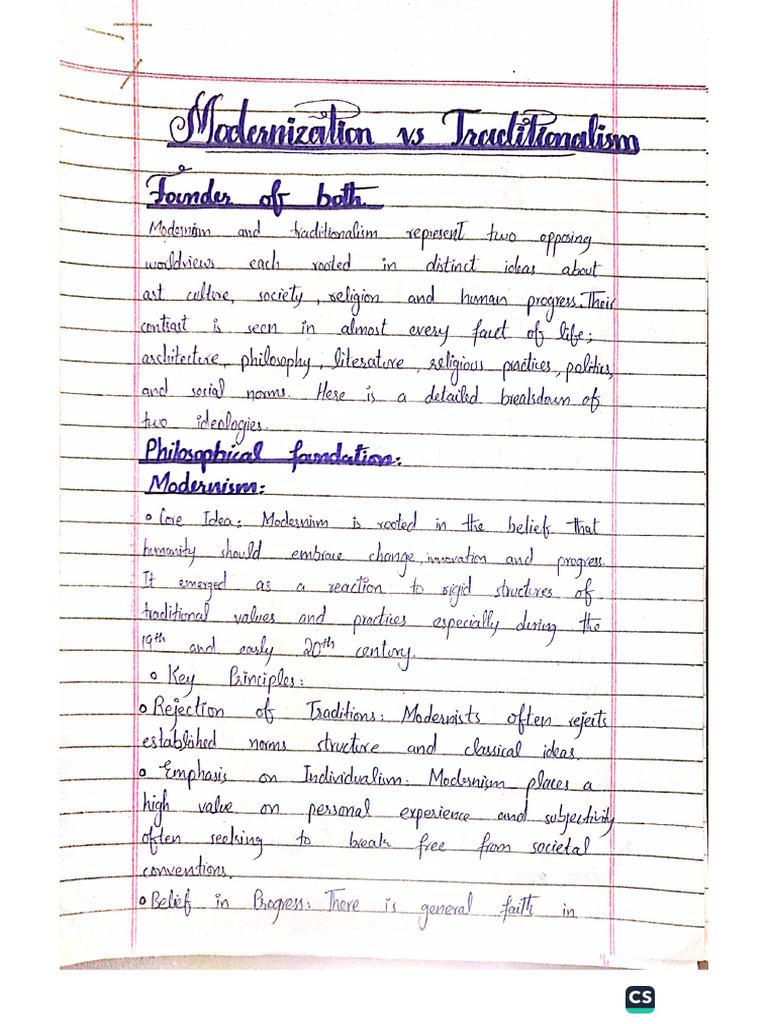 Modernization vs Traditionalism
Founder of both
Modernism and traditionalism represent two opposing
worldviews each rooted in distinct ideas about
art culture, society, religion and human progress. Their
contrast is seen in almost every facet of life;
architecture, philosophy, literature, religious practices, politics,
and social norms. Here is a detailed breakdown of
two ideologies.
Philosophical foundation:
Modernism:
Core Idea: Modernism is rooted in the belief that
humanity should embrace change, innovation and progress.
It emerged as a reaction to rigid structures of
traditional values and practices especially during the
19th and early 20th century.
Key Principles:
Rejection of Traditions: Modernists often rejects
established norms structure and classical ideas.
Emphasis on Individualism: Modernism places a
high value on personal experience and subjectivity
often seeking to break free from societal
conventions.
Belief in Progress: There is general faith in
CS